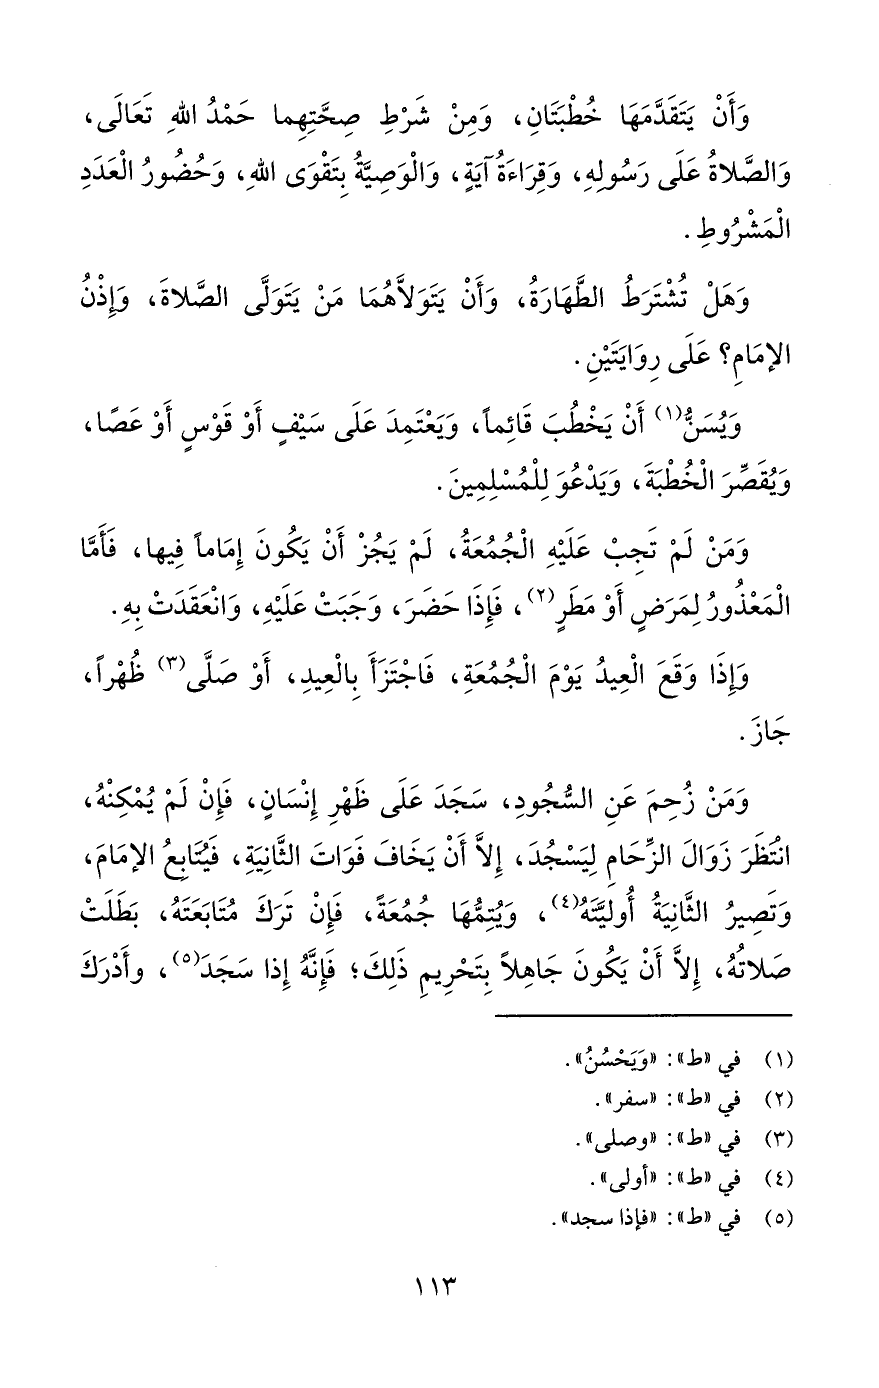 وَأَنْ يَتَقَدَّمَهَا خُطْبَتَانِ، وَمِنْ شَرْطِ صِحَّتِهِما حَمْدُ اللهِ تَعَالَى،
وَالصَّلاةُ عَلَى رَسُولِهِ، وَقِرَاءَةُ آيَةٍ، وَالْوَصِيَّةُ بِتَقْوَى اللهِ، وَحُضُورُ الْعَدَدِ
الْمَشْرُوطِ.
وَهَلْ تُشْتَرَطُ الطَّهَارَةُ، وَأَنْ يَتَوَلاَّهُمَا مَنْ يَتَوَلَّى الصَّلاةَ، وَإِذْنُ
الإمَامِ؟ عَلَى رِوَايَتَيْنِ.
وَيُسَنُّ(١) أَنْ يَخْطُبَ قَائِماً، وَيَعْتَمِدَ عَلَى سَيْفٍ أَوْ قَوْسٍ أَوْ عَصًا،
وَيُقَصِّرَ الْخُطْبَةَ، وَيَدْعُوَ لِلْمُسْلِمِينَ.
وَمَنْ لَمْ تَجِبْ عَلَيْهِ الْجُمُعَةُ، لَمْ يَجُزْ أَنْ يَكُونَ إِمَاماً فِيها، فَأَمَّا
الْمَعْذُورُ لِمَرَضٍ أَوْ مَطَرٍ(٢)، فَإِذَا حَضَرَ، وَجَبَتْ عَلَيْهِ، وَانْعَقَدَتْ بِهِ.
وَإِذَا وَقَعَ الْعِيدُ يَوْمَ الْجُمُعَةِ، فَاجْتَزَأَ بِالْعِيدِ، أَوْ صَلَّى(٣) ظُهْراً،
جَازَ.
وَمَنْ زُحِمَ عَنِ السُّجُودِ، سَجَدَ عَلَى ظَهْرِ إِنْسَانٍ، فَإِنْ لَمْ يُمْكِنْهُ،
انْتُظَرَ زَوَالَ الزِّحَامِ لِيَسْجُدَ، إِلاَّ أَنْ يَخَافَ فَوَاتَ الثَّانِيَةِ، فَيُتَابِعُ الإمَامَ،
وَتَصِيرُ الثَّانِيَةُ أُولَيَّتَهُ(٤)، وَيُتِمُّهَا جُمُعَةً، فَإِنْ تَرَكَ مُتَابَعَتَهُ، بَطَلَتْ
صَلاتُهُ، إِلاَّ أَنْ يَكُونَ جَاهِلاً بِتَحْرِيمِ ذَلِكَ؛ فَإِنَّهُ إِذا سَجَدَ(٥)، وأَدْرَكَ
(١) في «ط»: «وَيَحْسُنُ».
(٢) في «ط»: «سفر».
(٣) في «ط»: «وصلى».
(٤) في «ط»: «أولى».
(٥) في «ط»: «فإذا سجد».
١١٣